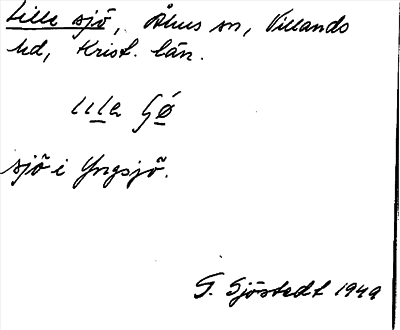 Lilla sjö, Åhus sn, Villands
hd, Krist. län.
sjö i Yngsjö.
G. Sjöstedt 1949